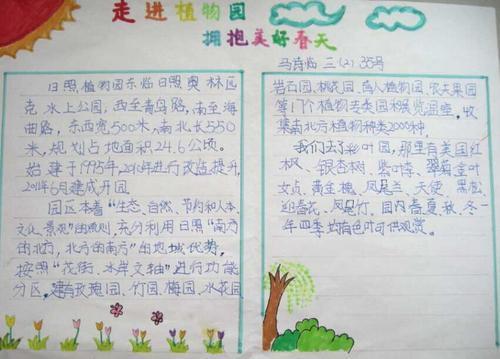 走进植物园
拥抱美好春天
马诗临 三(2) 35号
日照植物园东临日照奥林匹
克水上公园,西至青岛路,南至海
曲路,东西宽500米,南北长550
米,规划占地面积24.6公顷。
始建于1995年,2010年进行改造提升,
2011年6月建成开园
园区本着“生态、自然、节约和人本
文化、景观”的原则,充分利用日照“南方
的北方,北方的南方”的地域优势,
按照“花街、水岸文轴”进行功能
分区,建有玫瑰园、竹园、梅园、水花园
岩石园、桃花园、盲人植物园、农夫果园
等17个植物专类园和展览温室,收
集南北方植物种类2000种。
我们去了彩叶园,那里有美国红
枫、银杏树、紫叶李、翠菊、金叶
女贞、黄金槐、凤尾兰、天使、黑松
迎春花、凤尾竹。园内春、夏、秋、冬一
年四季均有色叶可供观赏。